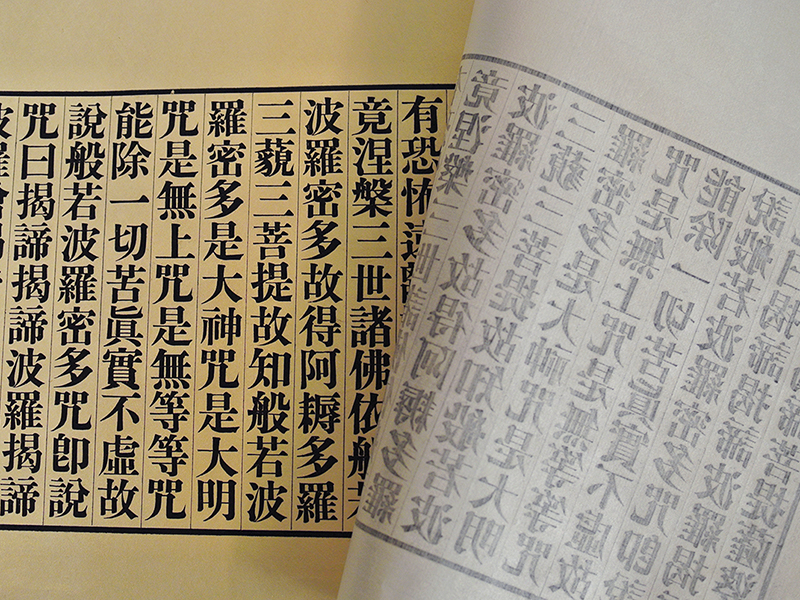 有恐怖遠
竟涅槃三世諸佛依般
波羅密多故得阿耨多羅
三藐三菩提故知般若波
羅密多是大神咒是大明
咒是無上咒是無等等咒
能除一切苦眞實不虛故
說般若波羅密多咒卽說
咒曰揭諦揭諦波羅揭諦
竟涅槃三世諸
波羅密多故得阿耨多羅
三藐三菩提故知般若波
羅密多是大神咒是大明
咒是無上咒是無等等咒
能除一切苦眞實不虛故
說般若波羅密多咒卽說
曰揭諦揭諦波羅揭
諦菩提薩婆